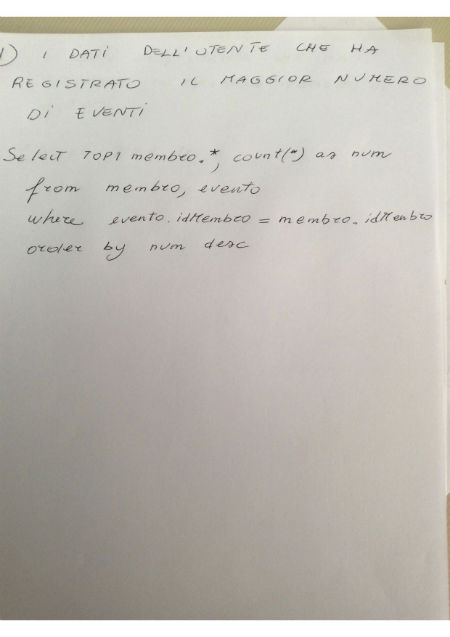 1) I DATI DELL'UTENTE CHE HA
REGISTRATO IL MAGGIOR NUMERO
DI EVENTI
Select TOP1 membro.*, count(*) as num
from membro, evento
where evento.idMembro = membro.idMembro
order by num desc